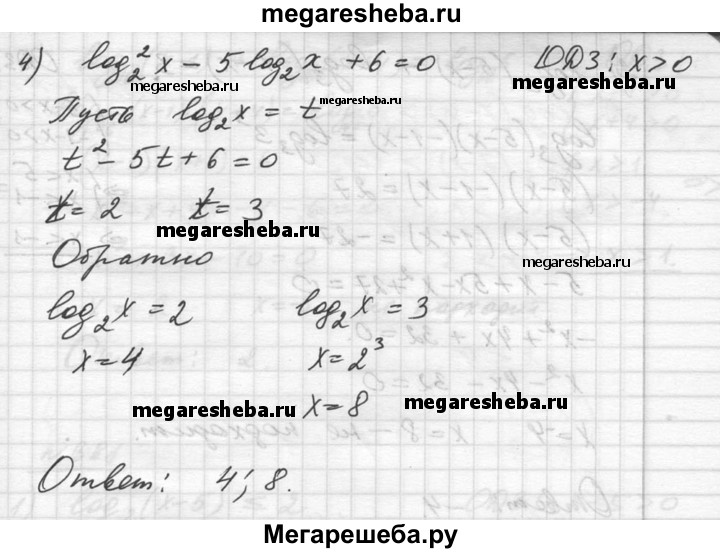 megaresheba.ru
4) log₂²x - 5 log₂x + 6 = 0 ОДЗ: x > 0
megaresheba.ru megaresheba.ru
Пусть log₂x = t megaresheba.ru
t² - 5t + 6 = 0
t = 2 t = 3
megaresheba.ru megaresheba.ru
Обратно
log₂x = 2 log₂x = 3
x = 4 x = 2³
megaresheba.ru x = 8 megaresheba.ru
Ответ: 4; 8.
Мегарешеба.ру